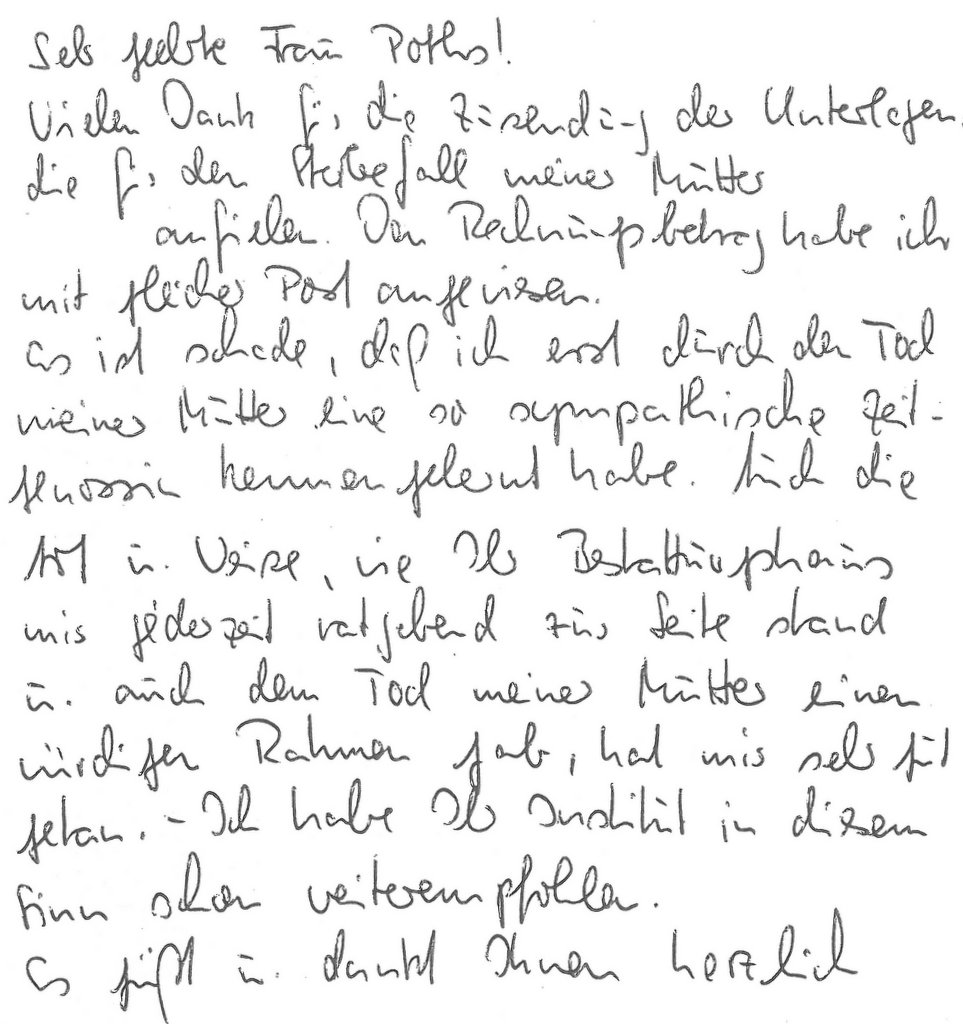 Sehr geehrte Frau Poths!
Vielen Dank für die Zusendung der Unterlagen,
die für den Sterbefall meiner Mutter
anfielen. Den Rechnungsbetrag habe ich
mit gleicher Post angewiesen.
Es ist schade, daß ich erst durch den Tod
meiner Mutter eine so sympathische Zeit-
genossin kennengelernt habe. Auch die
Art u. Weise, wie Ihr Bestattungshaus
mir jederzeit ratgebend zur Seite stand
u. auch dem Tod meiner Mutter einen
würdigen Rahmen gab, hat mir sehr gut
getan. - Ich habe Ihr Institut in diesem
Sinn schon weiterempfohlen.
Es grüßt u. dankt Ihnen herzlich